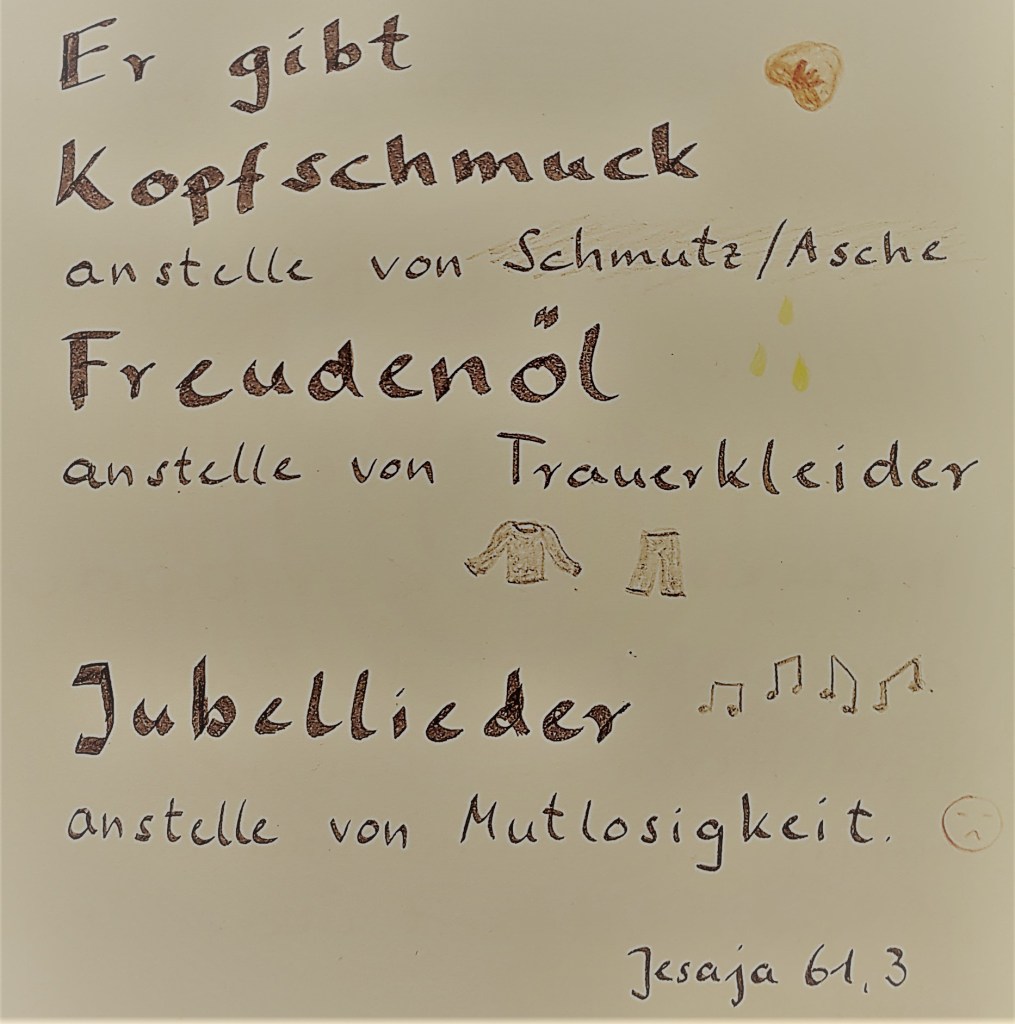 Er gibt
Kopfschmuck
anstelle von Schmutz/Asche
Freudenöl
anstelle von Trauerkleider
Jubellieder
anstelle von Mutlosigkeit.
Jesaja 61,3